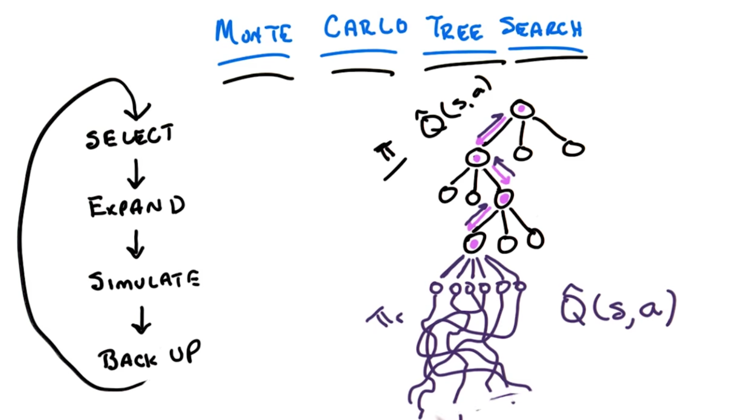 MONTE CARLO TREE SEARCH
SELECT
EXPAND
SIMULATE
BACK UP
π Q̂(s,a)
πr
Q̂(s,a)